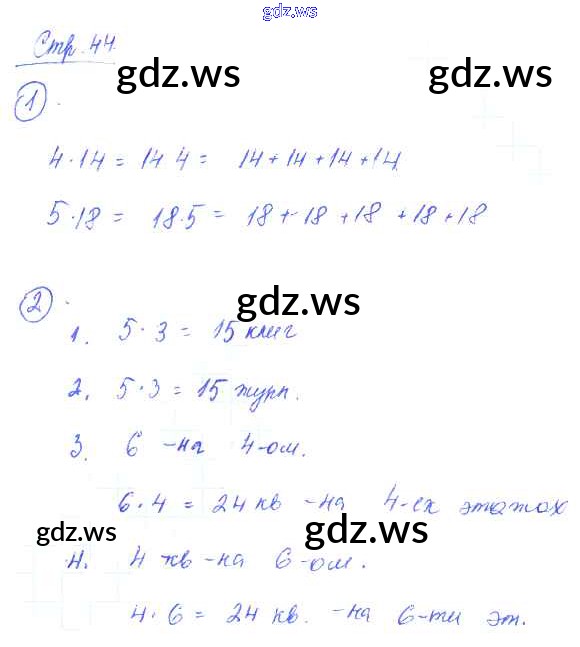 gdz.ws
Стр. 44.
gdz.ws gdz.ws
1.
4·14 = 14 4 = 14+14+14+14
5·18 = 18·5 = 18+18+18+18+18
gdz.ws
2.
1. 5·3 = 15 книг
2. 5·3 = 15 журн.
3. 6 -на 4-ом.
6·4 = 24 кв -на 4-ех этажах
gdz.ws gdz.ws
4. 4 кв -на 6-ом.
4·6 = 24 кв. -на 6-ти эт.